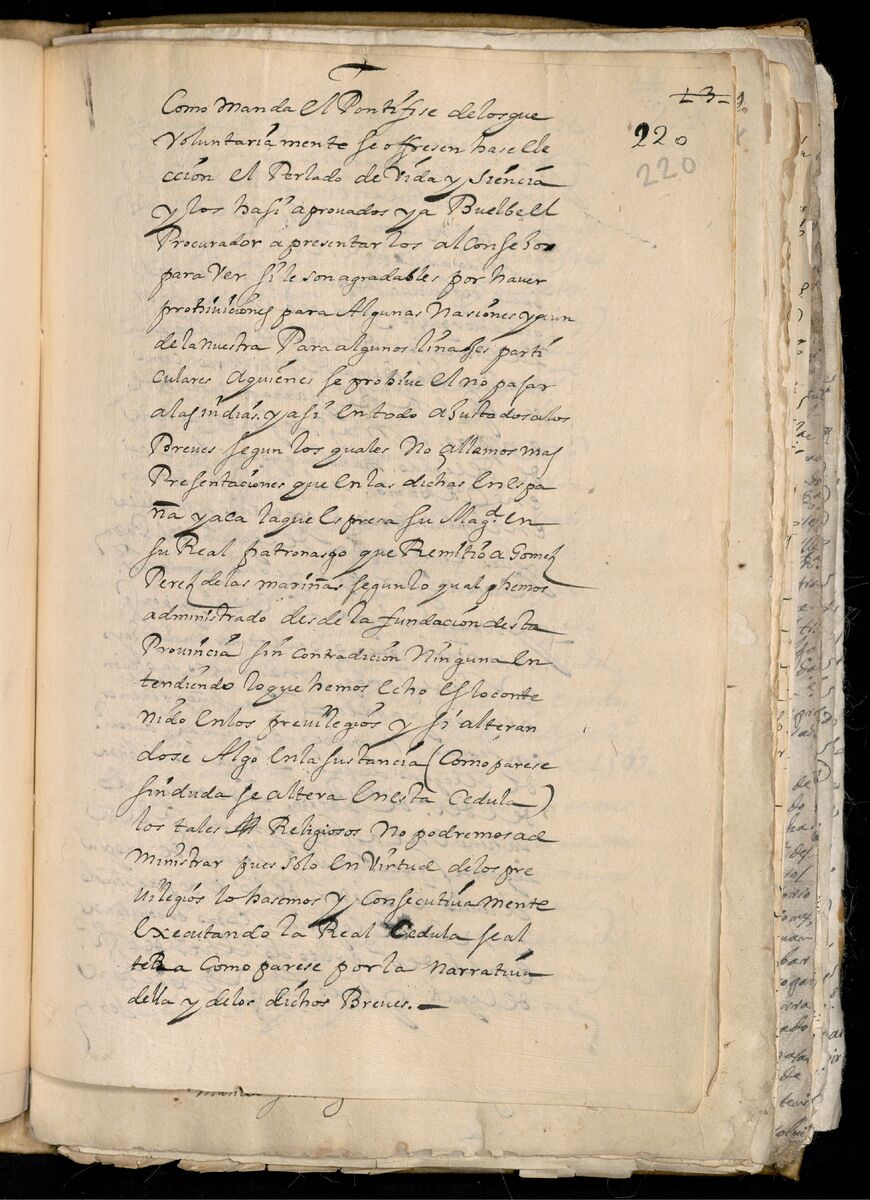 1391
220
220
Como manda el Pontifise delosque
Voluntariamente se offresen hase ele
cción el Perlado de Vida y siencia
y los hasi aprovados ya Buelbe el
Procurador a presentar los al Consejo
para Ver si le son agradables por haver
prohiviciones para Algunas Nasiones y aun
de la nuestra Para algunos linajes parti
culares aquienes se prohive el no pasar
alas indias, y asi en todo ajustados alos
Breves segun los quales No allamos mas
Presentaciones que en las dichas en Espa
ña y aca la que Espresa su Magd. en
su Real patronasgo que Remitio a Gomez
Perez de las mariñas segun lo qual hemos
administrado desde la fundacion desta
Provincia sin contradicion Ninguna En
tendiendo lo que hemos Echo es lo conte
nido en los previlegios y si alteran
dose Algo en la sustancia (Como parese
sin duda se altera en esta Cedula)
los tales Religiosos No podremos ad
ministrar pues solo en Virtud de los pre
vilegios lo hasemos y Consecutivamente
Executando la Real Cedula se al
tera Como parese por la narrativa
della y delos dichos Breves.—